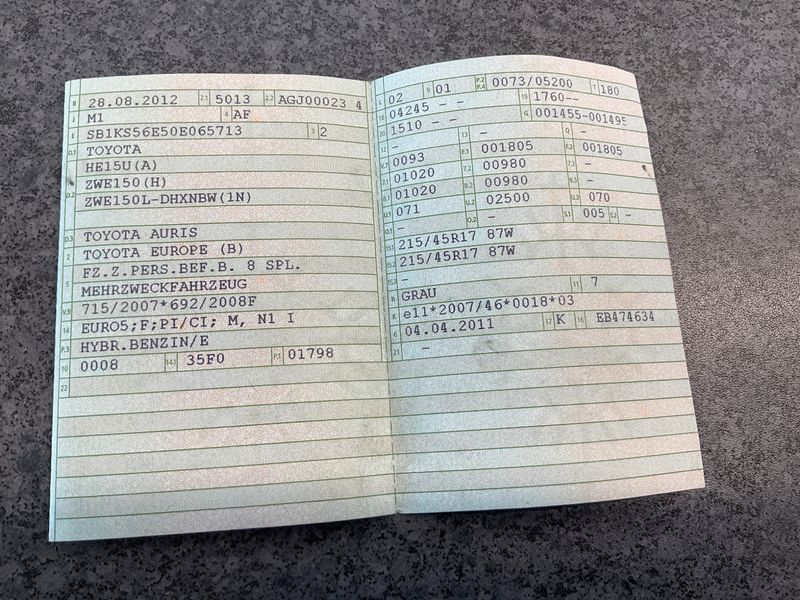 B 28.08.2012 2.1 5013 2.2 AGJ00023 4
J M1 4 AF
E SB1KS56E50E065713 3 2
D.1 TOYOTA
HE15U(A)
D.2 ZWE150(H)
ZWE150L-DHXNBW(1N)
D.3 TOYOTA AURIS
2 TOYOTA EUROPE (B)
FZ.Z.PERS.BEF.B. 8 SPL.
5 MEHRZWECKFAHRZEUG
V.9 715/2007*692/2008F
14 EURO5;F;PI/CI; M, N1 I
P.3 HYBR.BENZIN/E
10 0008 14.1 35F0 P.1 01798
22
L 02 9 01 P.2 P.4 0073/05200 T 180
18 04245 - - 19 1760--
20 1510 - - G 001455-001495
12 - 13 - Q -
V.7 0093 F.1 001805 F.2 001805
7.1 01020 7.2 00980 7.3 -
8.1 01020 8.2 00980 8.3 -
U.1 071 U.2 02500 U.3 070
O.1 - O.2 - S.1 005 S.2 -
15.1 215/45R17 87W
15.2 215/45R17 87W
15.3 -
R GRAU 11 7
K e11*2007/46*0018*03
6 04.04.2011 17 K 16 EB474634
21 -